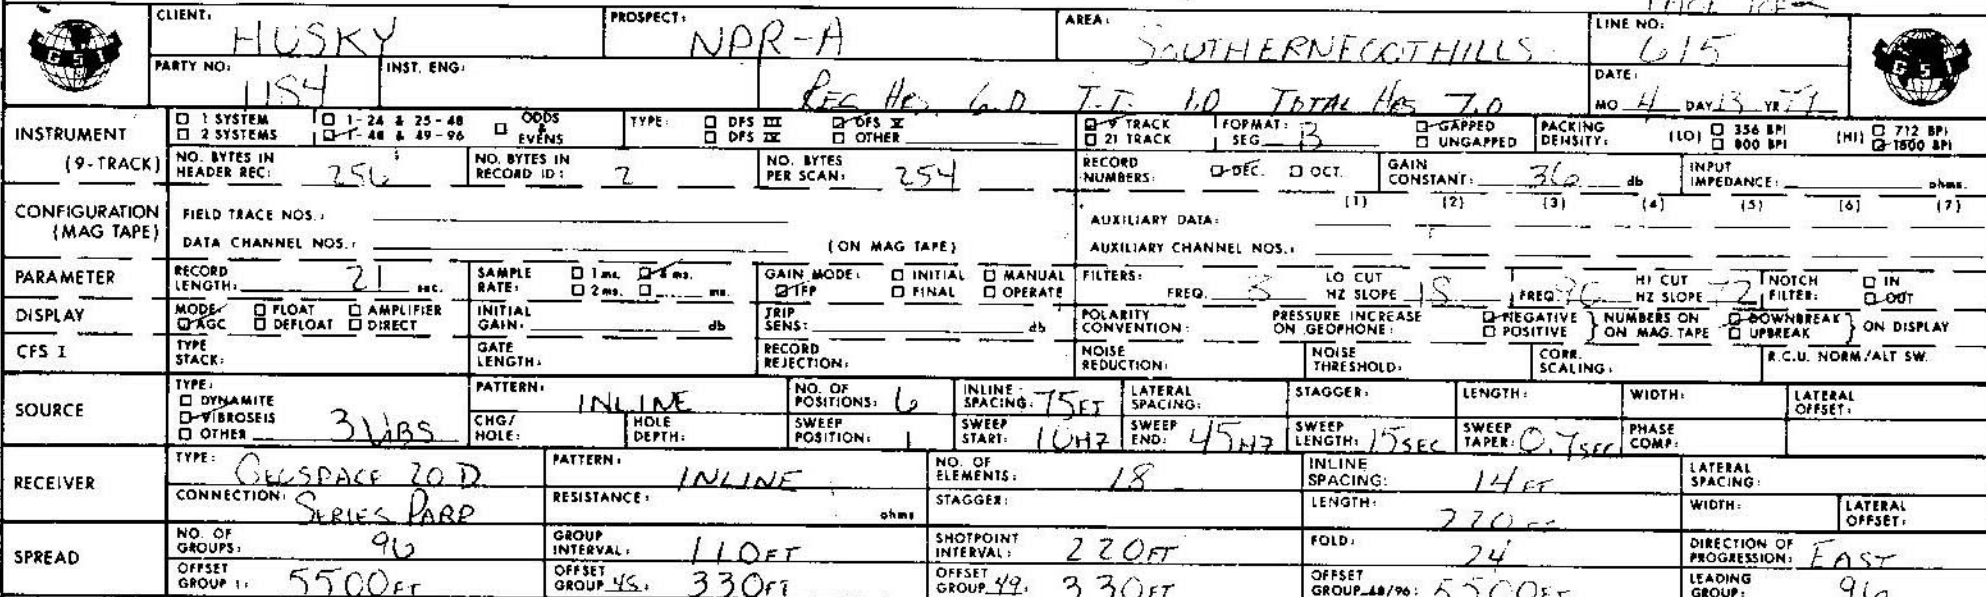 CLIENT: HUSKY PROSPECT: NPR-A AREA: SOUTHERN FOOTHILLS LINE NO: 615
PARTY NO: 1184 INST. ENG: REC HRS 6.0 T.T. 1.0 TOTAL HRS 7.0 DATE: MO 4 DAY 13 YR 79
GSI GSI
INSTRUMENT (9-TRACK)
☐ 1 SYSTEM ☐ 1-24 & 25-48 ☐ ODDS & EVENS TYPE: ☐ DFS III ☑ DFS V ☑ 9 TRACK FORMAT: SEG B ☑ GAPPED PACKING DENSITY: (LO) ☐ 356 BPI (HI) ☐ 712 BPI
☐ 2 SYSTEMS ☑ 1-48 & 49-96 ☐ DFS IV ☐ OTHER ☐ 21 TRACK ☐ UNGAPPED ☐ 800 BPI ☑ 1600 BPI
NO. BYTES IN HEADER REC: 256 NO. BYTES IN RECORD ID: 2 NO. BYTES PER SCAN: 254 RECORD NUMBERS: ☑ DEC. ☐ OCT. GAIN CONSTANT: 36 db INPUT IMPEDANCE: ohms.
CONFIGURATION (MAG TAPE)
FIELD TRACE NOS.: AUXILIARY DATA: (1) (2) (3) (4) (5) (6) (7)
DATA CHANNEL NOS.: (ON MAG TAPE) AUXILIARY CHANNEL NOS.:
PARAMETER
RECORD LENGTH: 21 sec. SAMPLE RATE: ☐ 1 ms. ☑ 4 ms. ☐ 2 ms. ☐ ms. GAIN MODE: ☐ INITIAL ☐ MANUAL ☑ IFP ☐ FINAL ☐ OPERATE FILTERS: FREQ. LO CUT HZ SLOPE 18 FREQ HI CUT HZ SLOPE 72 NOTCH FILTER: ☐ IN ☑ OUT
DISPLAY
MODE: ☐ FLOAT ☐ AMPLIFIER ☑ AGC ☐ DEFLOAT ☐ DIRECT INITIAL GAIN: db TRIP SENS: db POLARITY CONVENTION: PRESSURE INCREASE ON GEOPHONE: ☑ NEGATIVE ☐ POSITIVE } NUMBERS ON ON MAG. TAPE ☑ DOWNBREAK ☐ UPBREAK } ON DISPLAY
CFS I TYPE STACK: GATE LENGTH: RECORD REJECTION: NOISE REDUCTION: NOISE THRESHOLD: CORR. SCALING: R.C.U. NORM/ALT SW.
SOURCE
TYPE: ☐ DYNAMITE ☑ VIBROSEIS ☐ OTHER 3 VIBS PATTERN: INLINE NO. OF POSITIONS: 6 INLINE SPACING: 75 FT LATERAL SPACING: STAGGER: LENGTH: WIDTH: LATERAL OFFSET:
CHG/HOLE: HOLE DEPTH: SWEEP POSITION: 1 SWEEP START: 10 HZ SWEEP END: 45 HZ SWEEP LENGTH: 15 SEC SWEEP TAPER: 0.7 SEC PHASE COMP:
RECEIVER
TYPE: GEOSPACE 20 D PATTERN: INLINE NO. OF ELEMENTS: 18 INLINE SPACING: 14 FT LATERAL SPACING:
CONNECTION: SERIES PARP RESISTANCE: ohms STAGGER: LENGTH: 220 FT WIDTH: LATERAL OFFSET:
SPREAD
NO. OF GROUPS: 96 GROUP INTERVAL: 110 FT SHOTPOINT INTERVAL: 220 FT FOLD: 24 DIRECTION OF PROGRESSION: EAST
OFFSET GROUP 1: 5500 FT OFFSET GROUP 48: 330 FT OFFSET GROUP 49: 330 FT OFFSET GROUP 48/96: 5500 FT LEADING GROUP: 96